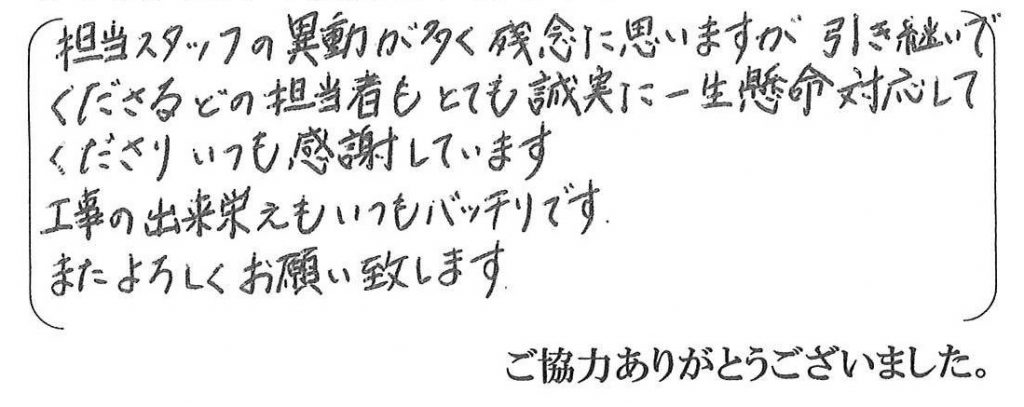 担当スタッフの異動が多く残念に思いますが 引き継いで
くださるどの担当者もとても誠実に一生懸命対応して
くださり いつも感謝しています
工事の出来栄えもいつもバッチリです.
またよろしくお願い致します.
ご協力ありがとうございました。